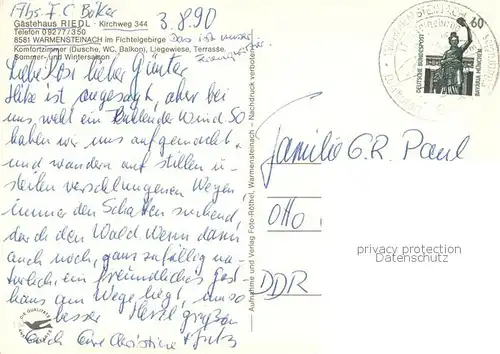 Abs. F C Bölker
3.8.90
Gästehaus RIEDL - Kirchweg 344
Telefon 09277/350
8581 WARMENSTEINACH im Fichtelgebirge
Komfortzimmer (Dusche, WC, Balkon), Liegewiese, Terrasse,
Sommer- und Wintersaison
Das ist unser
Liebe lieber Günter
Hitze ist angesagt, aber bei
uns weht ein Wind. So
haben wir uns aufgemacht
und wandern auf stillen u.
steilen verschlungenen Wegen
immer den Schatten suchend,
durch den Wald. Wenn dann
auch noch, ganz zufällig na-
türlich, ein freundliches Gast-
haus am Wege liegt, umso
besser. Herzl. grüßen
Euch Eure Christine + Fritz
Aufnahme und Verlag Foto-Röthel, Warmensteinach - Nachdruck verboten
60
DEUTSCHE BUNDESPOST
Familie G. R. Paul
Otto
DDR
privacy protection
Datenschutz
DIE QUALITÄTS